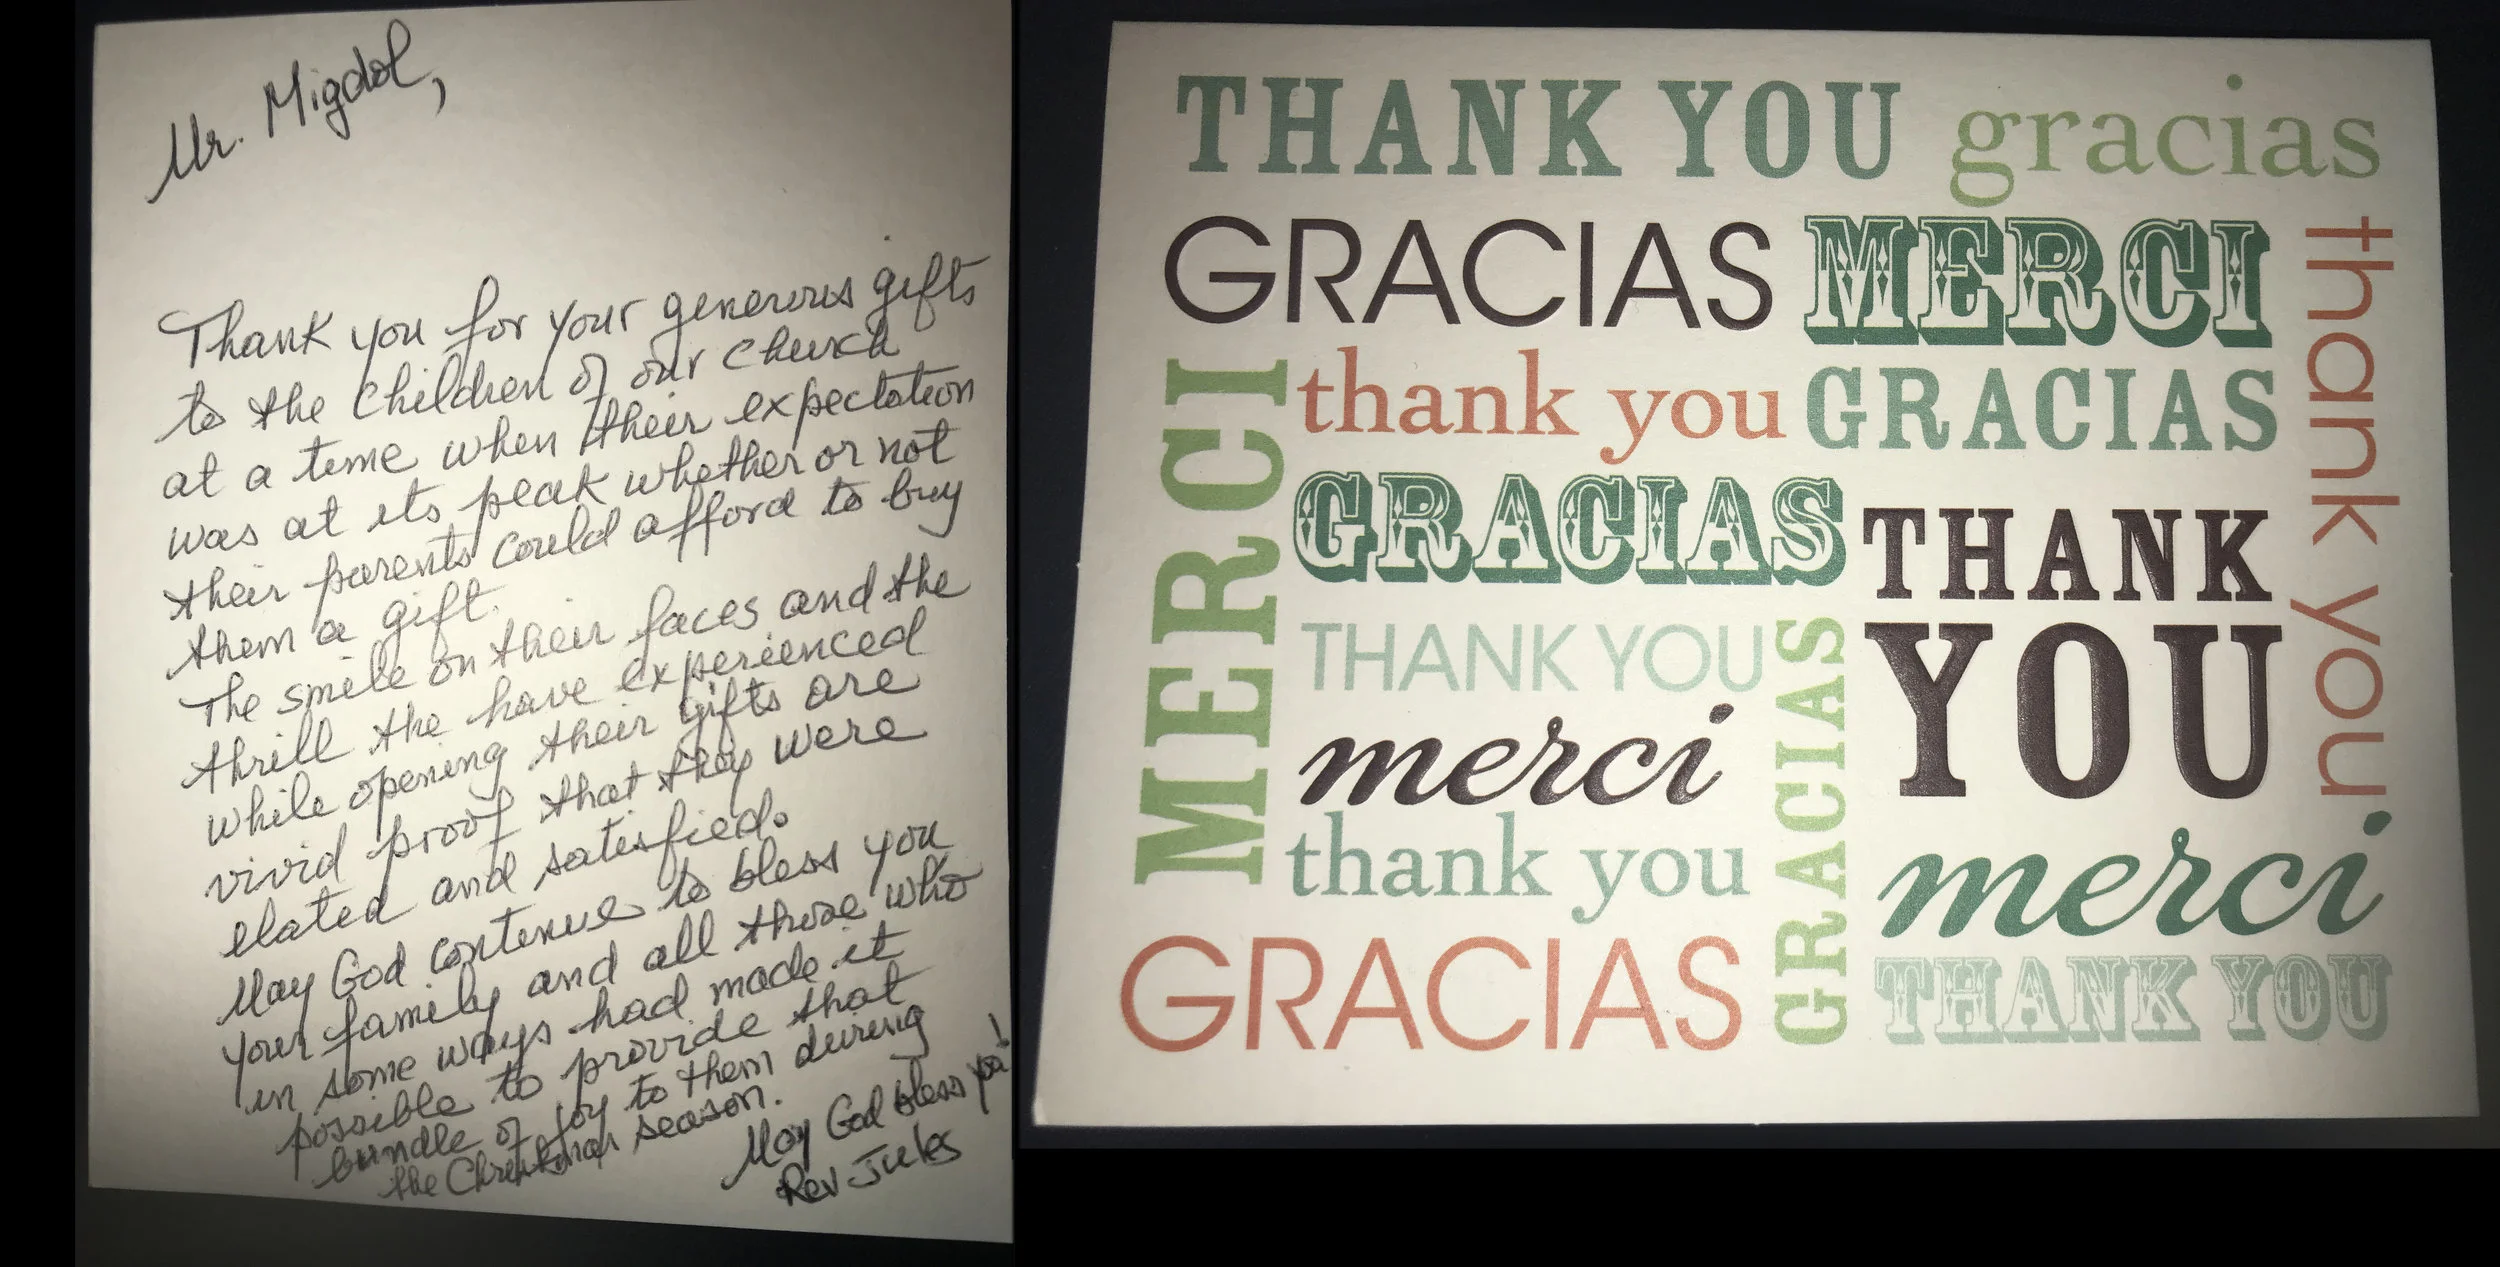 Mr. Migdol,
Thank you for your generous gifts
to the children of our church
at a time when their expectation
was at its peak whether or not
their parents could afford to buy
them a gift.
The smile on their faces and the
thrill the have experienced
while opening their gifts are
vivid proof that they were
elated and satisfied.
May God continue to bless you
your family and all those who
in some ways had made it
possible to provide that
bundle of joy to them during
the Christmas season.
May God bless you!
Rev Jules
THANK YOU gracias
GRACIAS MERCI
thank you
MERCI
thank you GRACIAS
GRACIAS
THANK
YOU
THANK YOU
GRACIAS
merci
thank you
merci
GRACIAS
THANK YOU